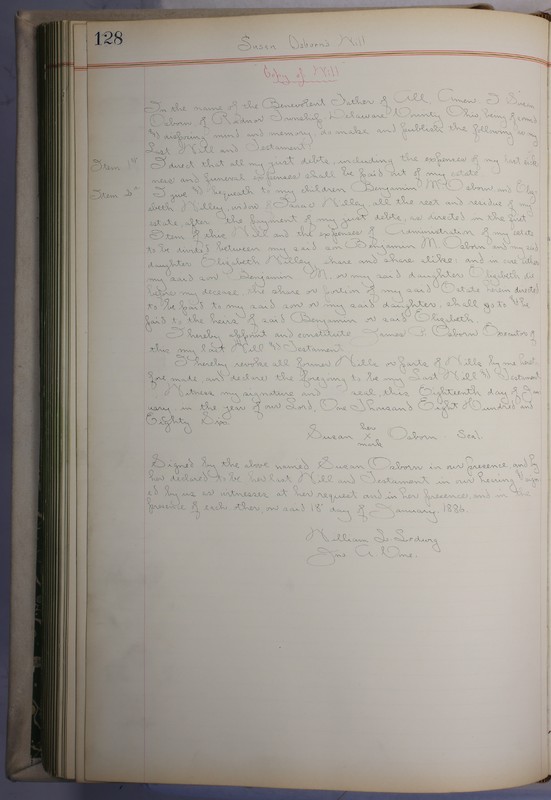 128
Susan Osborn's Will
Copy of Will
In the name of the Benevolent Father of All Amen. I Susan
Osborn of Radnor Township, Delaware County, Ohio being of sound
& disposing mind and memory do make and publish the following as my
Last Will and Testament.
Item 1st I direct that all my just debts, including the expenses of my last sick
ness and funeral expenses shall be paid out of my estate.
Item 2d I give & bequeath to my children Benjamin M. Osborn and Eliz
abeth Willey, widow of Willey, all the rest and residue of my
estate, after the payment of my just debts, as directed in the first
Item of this Will and the expenses of administration of my estate
to be divided between my said son Benjamin M. Osborn and my said
daughter Elizabeth Willey, share and share alike; and in case either
my said son Benjamin M. or my said daughter Elizabeth die
before my decease, the share or portion of my said Estate herein directed
to be paid to my said son or my said daughter, shall go to & be
paid to the heirs of said Benjamin or said Elizabeth.
I hereby appoint and constitute James P. Osborn Executor of
this my last Will & Testament.
I hereby revoke all former Wills or parts of Wills by me here
fore made and declare the foregoing to be my Last Will & Testament
Witness my signature and seal, this Eighteenth day of Jan
uary in the year of our Lord, One Thousand Eight Hundred and
Eighty Six
her
Susan x Osborn Seal
mark
Signed by the above named Susan Osborn in our presence, and by
her declared to be her last Will and Testament in our hearing & sign
ed by us as witnesses at her request and in her presence and in the
presence of each other on said 18 day of January, 1886.
William
Jas.